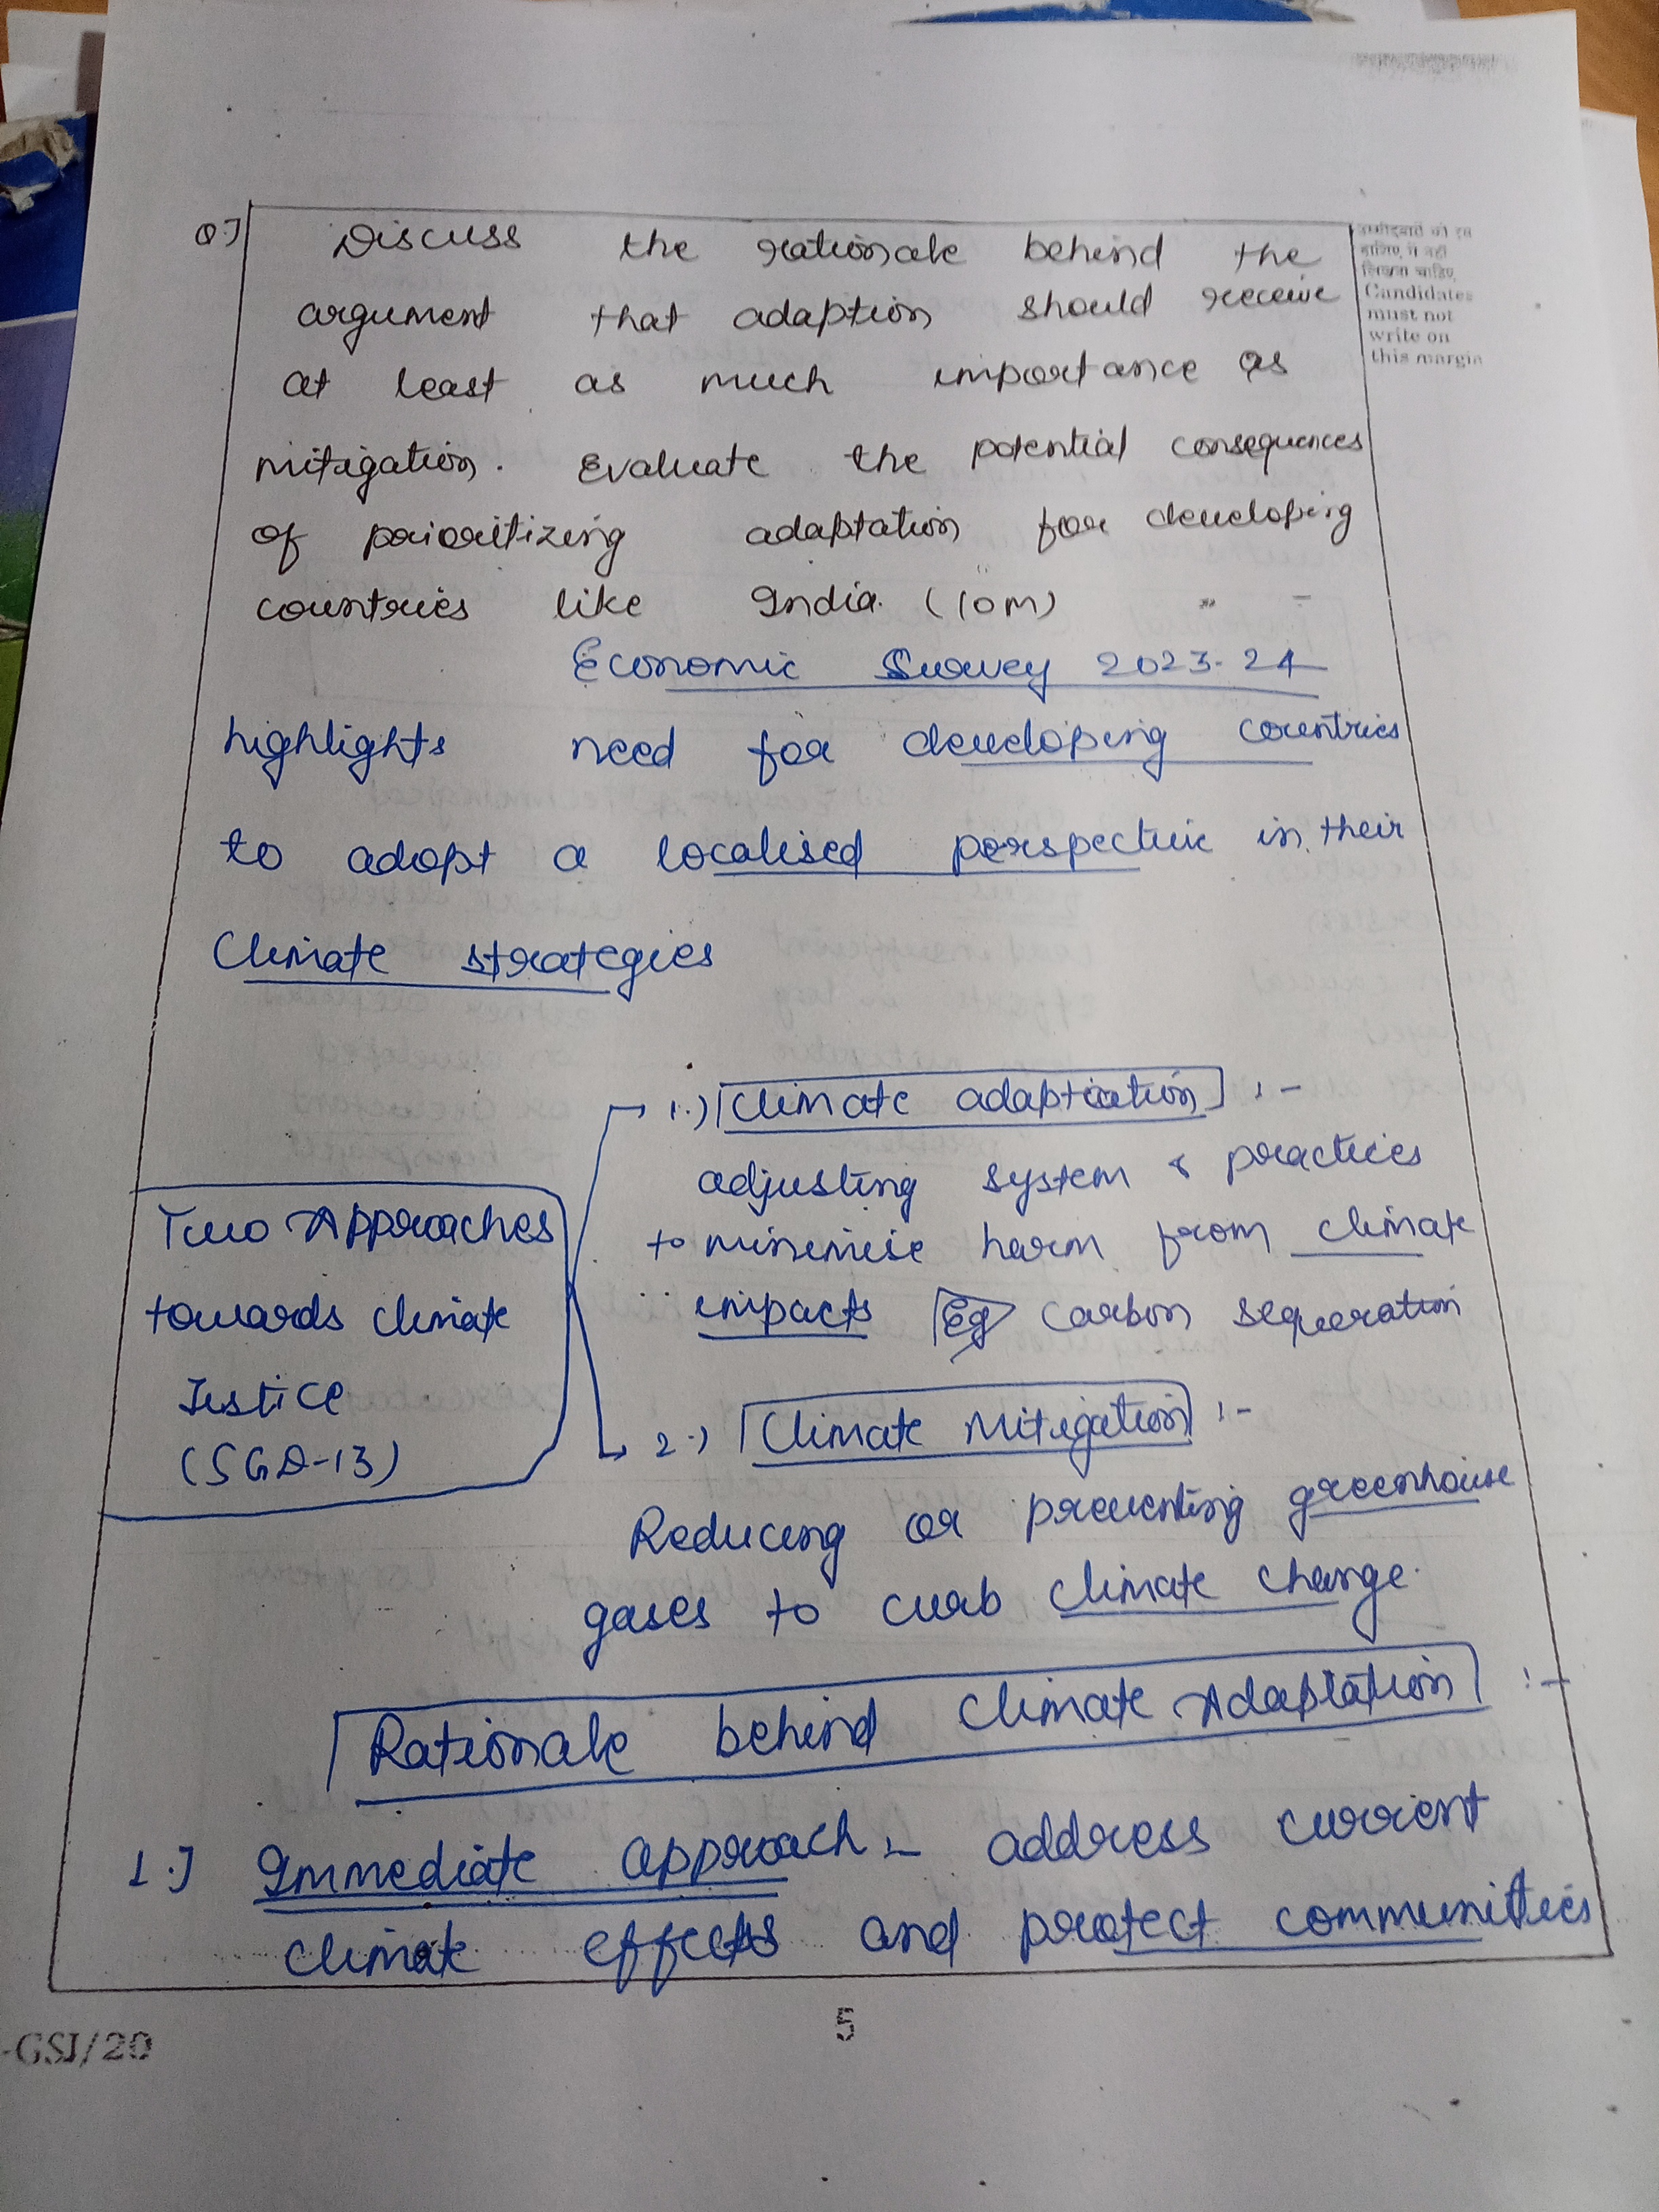 Q.] Discuss the rationale behind the
argument that adaption should receive
at least as much importance as
mitigation. Evaluate the potential consequences
of prioritizing adaptation for developing
countries like India. (10M)
उम्मीदवारों को इस
हाशिए में नहीं
लिखना चाहिए,
Candidates
must not
write on
this margin
Economic Survey 2023-24
highlights need for developing countries
to adopt a localised perspective in their
Climate strategies
Two Approaches
towards climate
Justice
(SGD-13)
1.) Climate adaptation :-
adjusting system & practices
to minimise harm from climate
impacts Eg Carbon sequeration
2.) Climate Mitigation :-
Reducing or preventing greenhouse
gases to curb climate change.
Rationale behind Climate Adaptation :-
1.] Immediate approach :- address current
climate effects and protect communities
5
-GSI/20